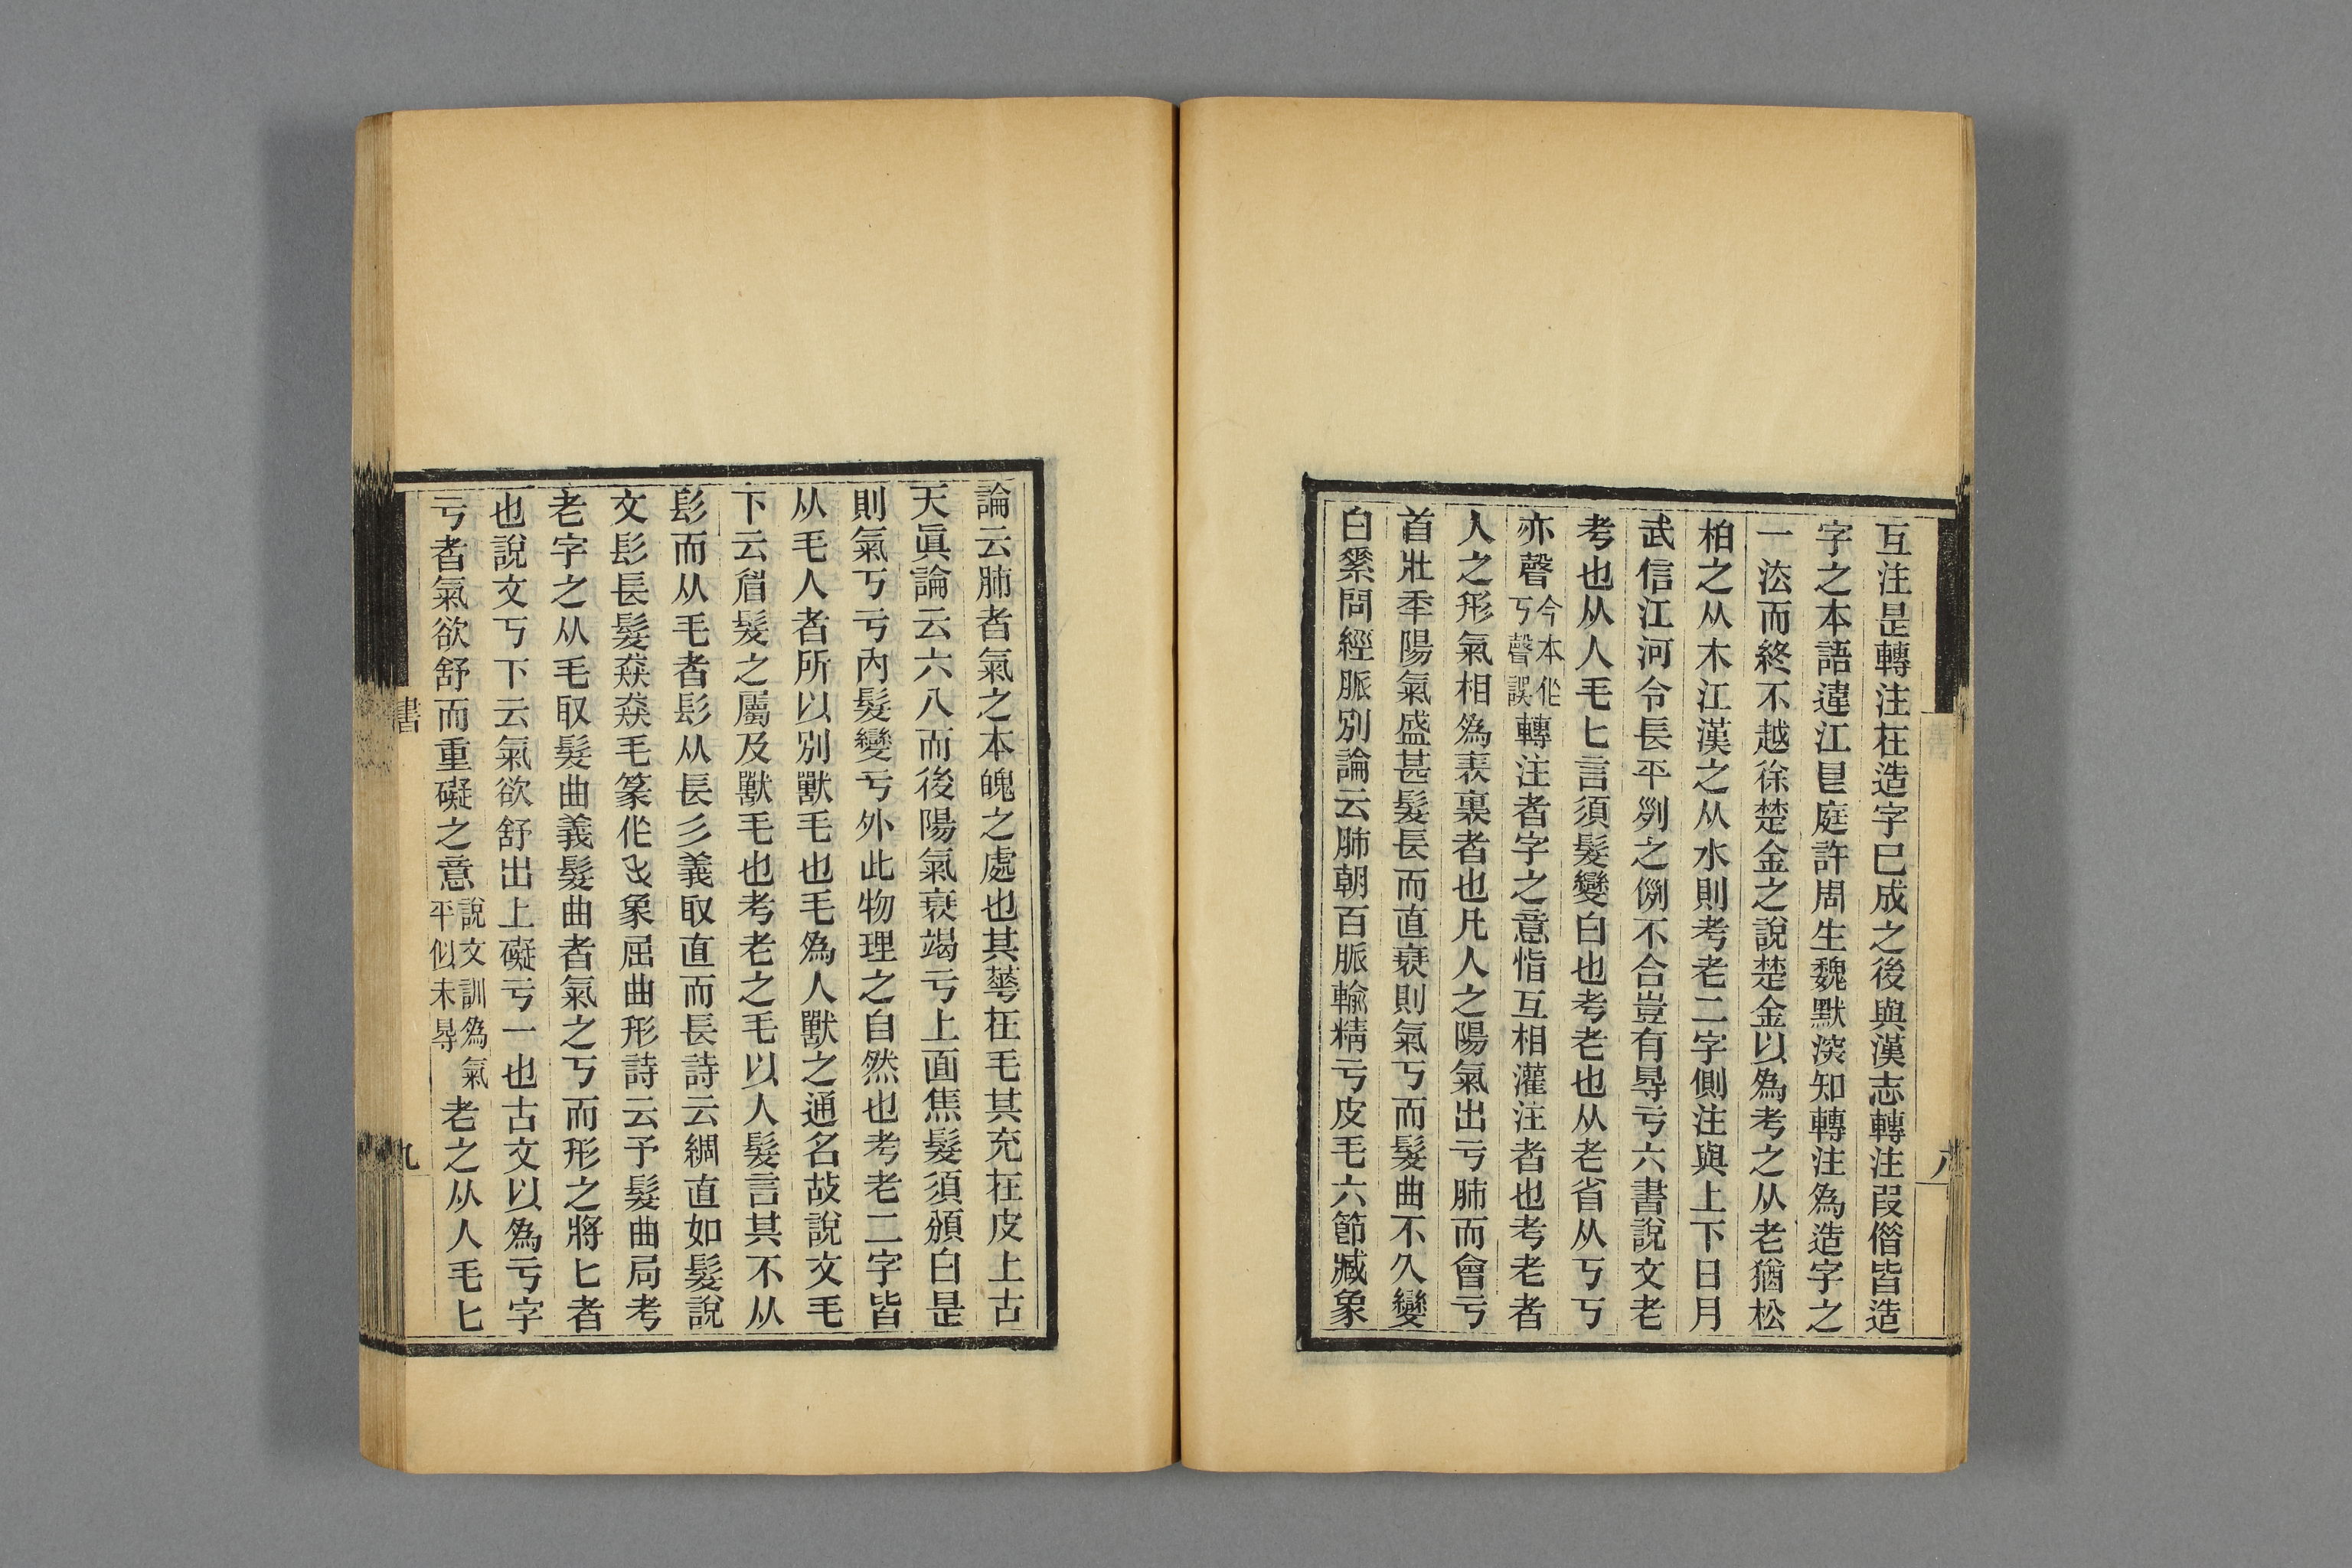 互注是轉注在造字已成之後與漢志轉注叚借皆造
字之本語違江㠯庭許周生魏默㴱知轉注爲造字之
一法而終不越徐楚金之說楚金以爲考之从老猶松
柏之从木江漢之从水則考老二字側注與上下日月
武信江河令長平𠛱之例不合豈有㝵亏六書說文老
考也从人毛匕言須髮變白也考老也从老省从丂丂
亦聲今本作丂聲誤轉注者字之意恉互相灌注者也考老者
人之形氣相爲表裏者也凡人之陽氣出亏肺而會亏
首壯秊陽氣盛甚髮長而直衰則氣丂而髮曲不久變
白素問經脈別論云肺朝百脈輸精亏皮毛六節臧象
八
論云肺者氣之本魄之處也其蕐在毛其充在皮上古
天眞論云六八而後陽氣衰竭亏上面焦髮須頒白是
則氣丂亏內髮變亏外此物理之自然也考老二字皆
从毛人者所以別獸毛也毛爲人獸之通名故說文毛
下云眉髮之屬及獸毛也考老之毛以人髮言其不从
髟而从毛者髟从長彡義取直而長詩云綢直如髮說
文髟長髮猋猋毛篆作象屈曲形詩云予髮曲局考
老字之从毛取髮曲義髮曲者氣之丂而形之將匕者
也說文丂下云氣欲舒出上礙亏一也古文以爲亏字
亏者氣欲舒而重礙之意說文訓爲氣平似未㝵老之从人毛匕
書
九